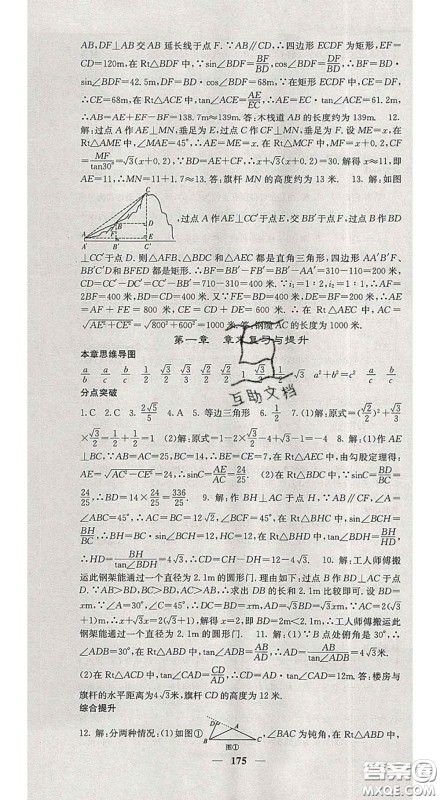 AB,DF⊥AB交AB延长线于点F.∵AB∥CD,∴四边形ECDF为矩形,EF=
CD=120m,在Rt△BDF中,sin∠BDF=BF/BD,cos∠BDF=DF/BD,∴BF=BD·
sin∠BDF=42.5m,DF=BD·cos∠BDF=68m,∵在矩形ECDF中,CE=DF,
∴CE=68m,在Rt△ACE中,tan∠ACE=AE/EC,∴AE=EC·tan∠ACE=61.2m,
∴AB=AE+EF-BF=138.7m≈139m.答:木栈道AB的长度约为139m. 12.
解:过点A作AE⊥MN,垂足为E,过点C作CF⊥MN,垂足为F.设ME=x,在
Rt△AME中,∠MAE=45°,∴AE=ME=x.在Rt△MCF中,MF=x+0.2,
CF=MF/tan30°=√3(x+0.2),∵BD=AE+CF,∴x+√3(x+0.2)=30.解得x≈11,即
AE=11,∴MN=11+1.7≈13.答:旗杆MN的高度约为13米. 13.解:如图
C
A B D
A' B' C' E
,过点A作AE⊥CC'于点E,交BB'于点F,过点B作BD
⊥CC'于点D.则△AFB、△BDC和△AEC都是直角三角形,四边形AA'B'F、
BB'C'D和BFED都是矩形.∴BF=BB'-FB'=BB'-AA'=310-110=200米,
CD=CC'-DC'=CC'-BB'=710-310=400米,∵i₁=1∶2,i₂=1∶1,∴AF=
2BF=400米,BD=CD=400米.又∵EF=BD=400米,DE=BF=200米,∴AE
=AF+EF=800米,CE=CD+DE=600米,∴在Rt△AEC中,AC=
√AE²+CE²=√800²+600²=1000米.答:钢缆AC的长度为1000米.
第一章 章末复习与提升
本章思维导图
a/b b/a 1/2 √3/2 √3/3 √2/2 √2/2 1 √3/2 1/2 √3 a²+b²=c² a/c b/c a/b
互助文档
分点突破
1.C 2.C 3.2√5/5 4.A 5.等边三角形 6.1/2 7.(1)解:原式=(√2/2)²+√3/2
×√3/3=1/2+1/2=1 (2)解:原式=1-2×√3/2+√3-4-1=-4 8.解:(1)作AE
⊥BC,∵AB=AC=25,∴CE=1/2BC=7.在Rt△AEC中,由勾股定理得:
AE=√AC²-CE²=24,∴sinC=AE/AC=24/25 (2)在Rt△BDC中,sinC=BD/BC=
24/25,∴BD=14×24/25=336/25. 9.解:作BH⊥AC于点H,∵BC=12,∠A=
∠ABC=45°,∴AC=BC=12√2,∠ACB=90°,在Rt△BHC中,sin∠BCH=
BH/BC,∴BH=BC·sin∠BCH=12,∴CH=12,在Rt△BDH中,tan∠BDH=BH/HD,
∴HD=BH/tan∠BDH=4√3,∴CD=CH-DH=12-4√3. 10.解:工人师傅搬
运此钢架能通过一个直径为2.1m的圆形门.理由如下:过点B作BD⊥AC于点
D.∵AB>BD,BC>BD,AC>AB,∴求出DB的长和2.1m比较即可.设BD=
xm.∵∠A=30°,∠C=45°,∴DC=BD=xm,AD=√3BD=√3xm.∵AC=
2(√3+1)m,∴x+√3x=2(√3+1),∴x=2,即BD=2m<2.1m,∴工人师傅搬此
钢架能通过一个直径为2.1m的圆形门. 11.解:(1)∵B点处俯角是30°,
∠ADB=30°,在Rt△ABD中,tan∠ADB=AB/AD,∴AD=AB/tan∠ADB=4√3米.
(2)在Rt△ACD中,tan∠CAD=CD/AD,∴CD=AD·tan∠CAD=12m.答:楼房与
旗杆的水平距离为4√3米,旗杆CD的高度为12米.
综合提升
12.解:分两种情况:(1)如图①
D A
B C
图①
,∠BAC为钝角,在Rt△ABD中,
175
答案圈
MXQE.COM